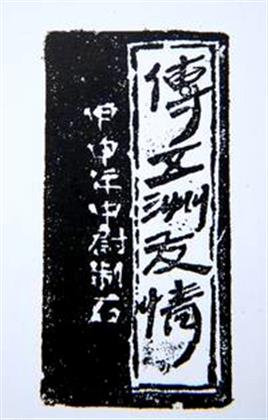 傳五洲友情
甲申年中尉制石